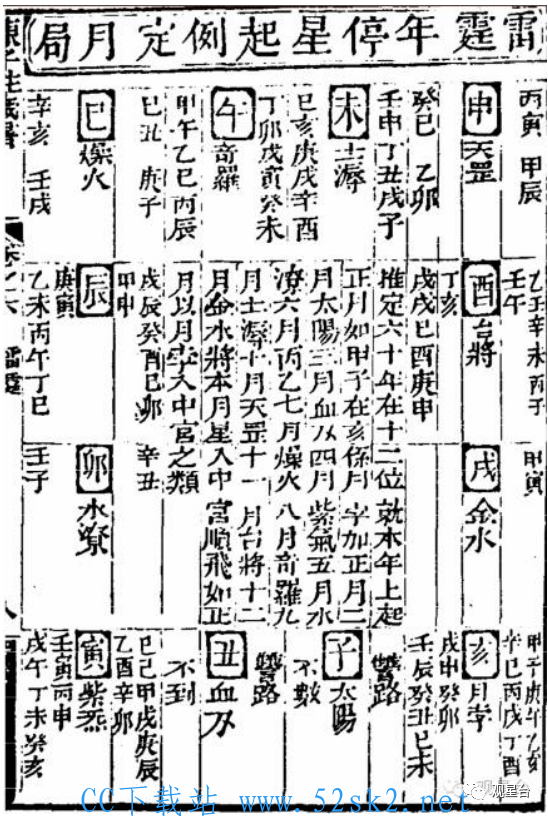 雷霆年停星起例定月局
丙寅 甲辰
申 天罡
癸巳 乙卯
壬申丁丑戊子
未 土溽
己亥庚戌辛酉
丁卯戊寅癸未
午 奇羅
甲午乙巳丙辰
己丑 庚子
巳 燥火
辛亥 壬戌
乙丑辛未丙子
壬午
酉 台將
丁亥
戊戌己酉庚申
甲寅
戌 金水
推定六十年在十二位 就本年上起
正月如甲子在亥係月孛加正月二
月太陽三月血刃四月紫氣五月水
潦六月丙乙七月燥火八月奇羅九
月土溽十月天罡十一月台將十二
月金水將本月星入中宮順飛如正
月以月孛入中宮之類
戊辰癸酉己卯 辛丑
甲申
辰
庚寅
乙未丙午丁巳
卯 水潦
壬子
甲子庚午乙亥
辛巳丙戌丁酉
亥 月孛
戊申癸卯
壬辰癸丑己未
子 太陽
不數
丑 血刃
不到
己巳甲戌庚辰
乙酉辛卯
寅 紫炁
壬寅丙申
戊午丁未癸亥
卷之六 雷霆
八
观星台
CC下载站 www.52sk2.net